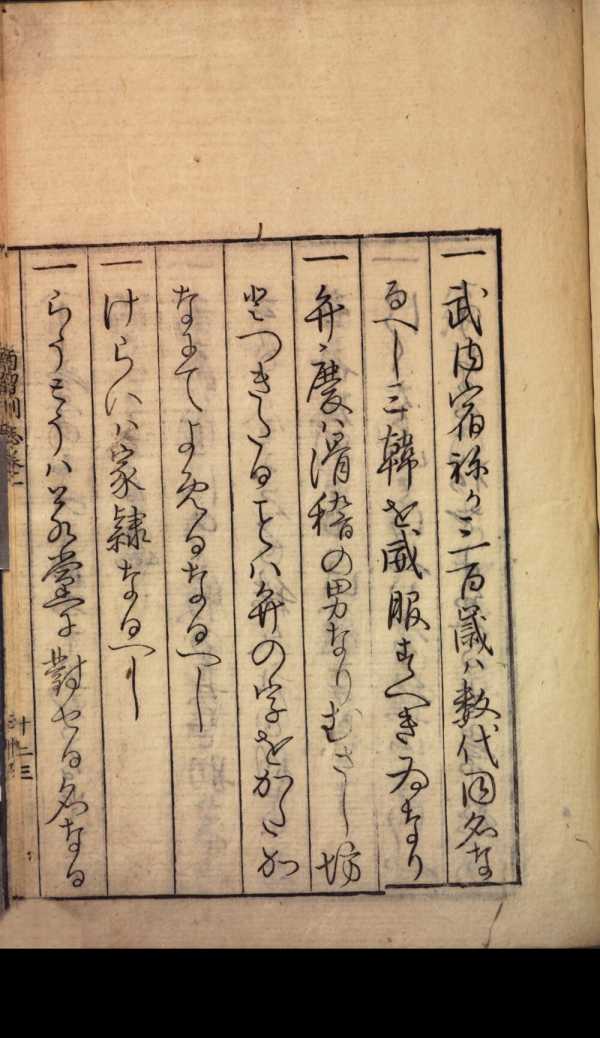 一武内宿祢か三百歳ハ数代同名な
るへし三韓を威服すへき為なり
一弁慶ハ滑稽の男なりむさし坊
とつきたることハ弁の字をかたか
なにてよめるなるへし
一けらいハ家隷なるへし
一らうとうハ若黨に對せる名なる
南留別志巻二